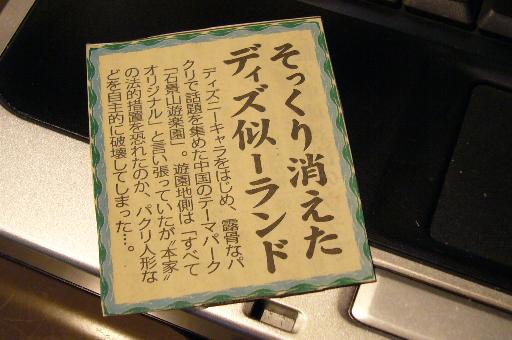 そっくり消えた
ディズ似ーランド
ディズニーキャラをはじめ、露骨なパ
クリで話題を集めた中国のテーマパーク
「石景山遊楽園」。遊園地側は「すべて
オリジナル」と言い張っていたが“本家”
の法的措置を恐れたのか、パクリ人形な
どを自主的に破壊してしまった…。